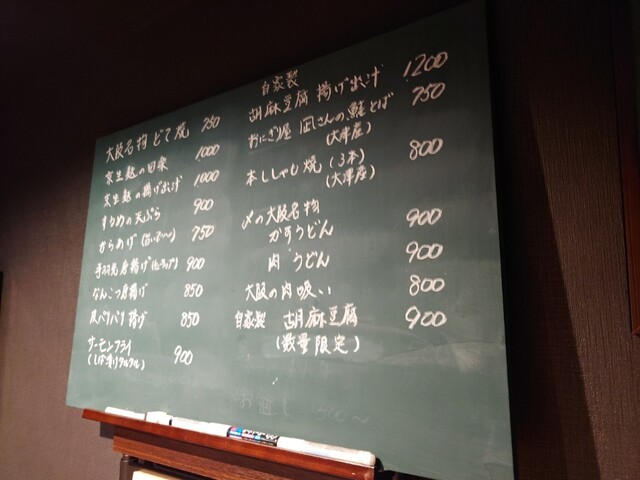 大阪名物 どて焼 750
京生麩の田楽 1000
京生麩の揚げ出汁 1000
するめの天ぷら 900
からあげ 750
手羽先唐揚げ 900
なんこつ唐揚げ 850
皮パリパリ揚げ 850
サーモンフライ
(しば漬けタルタル) 900
自家製
胡麻豆腐 揚げ出汁 1200
おにぎり屋 凪さんの鮭とば 750
(大津産)
本ししゃも焼 (3本) 800
(大津産)
〆の大阪名物
かすうどん 900
肉うどん 900
大阪の肉吸い 800
自家製 胡麻豆腐 900
(数量限定)